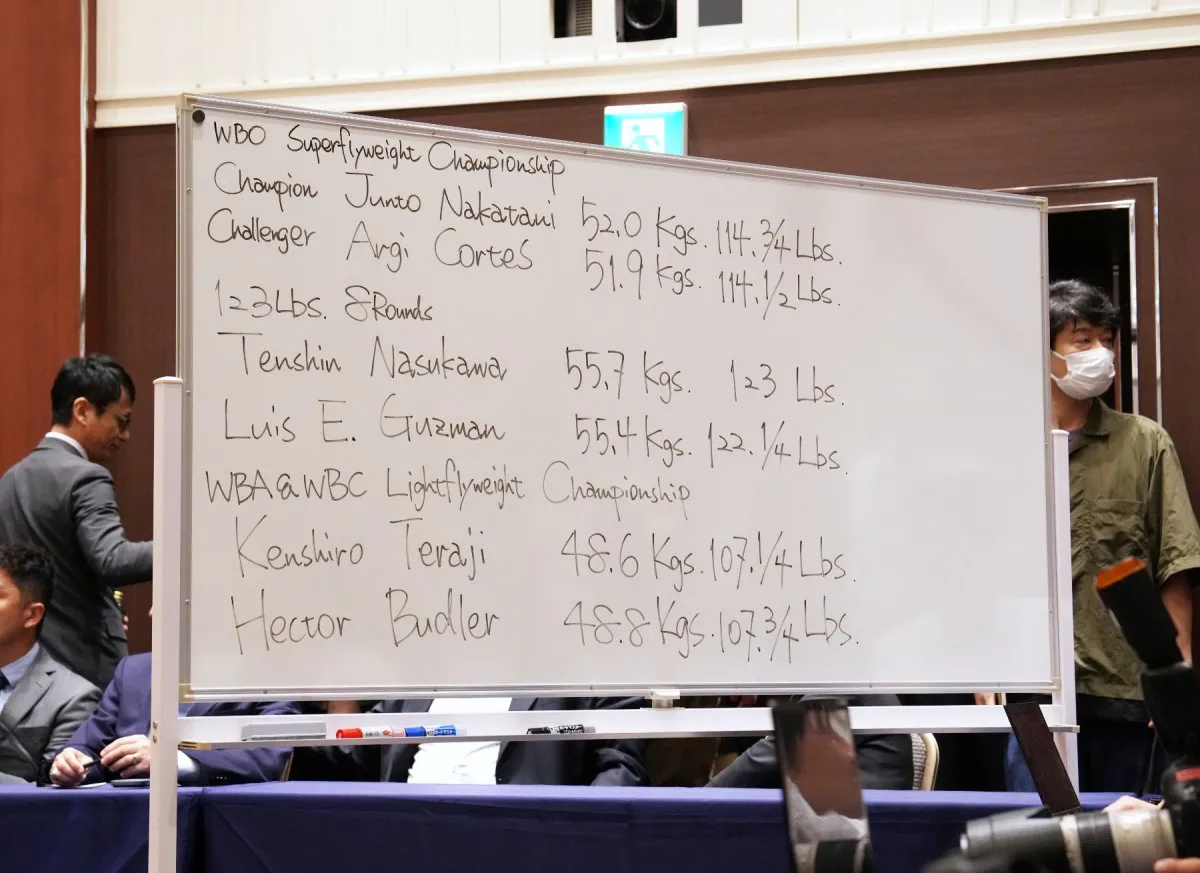 WBO Superflyweight Championship
Champion Junto Nakatani 52.0 Kgs. 114.3/4 Lbs.
Challenger Argi Cortes 51.9 kgs. 114.1/2 Lbs.
123Lbs. 8Rounds
Tenshin Nasukawa 55.7 Kgs. 123 Lbs.
Luis E. Guzman 55.4 Kgs. 122.1/4 Lbs.
WBA&WBC Lightflyweight Championship
Kenshiro Teraji 48.6 Kgs. 107.1/4 Lbs.
Hector Budler 48.8 Kgs. 107.3/4 Lbs.